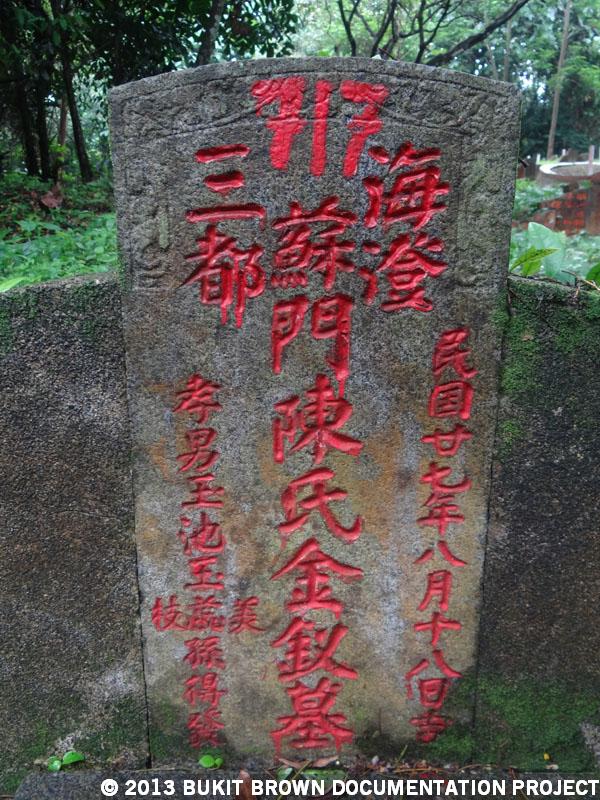 海澄
三都
蘇門陳氏金釵墓
民國廿七年八月十八日
孝男玉池玉蕊孫得發
美
枝
© 2013 BUKIT BROWN DOCUMENTATION PROJECT